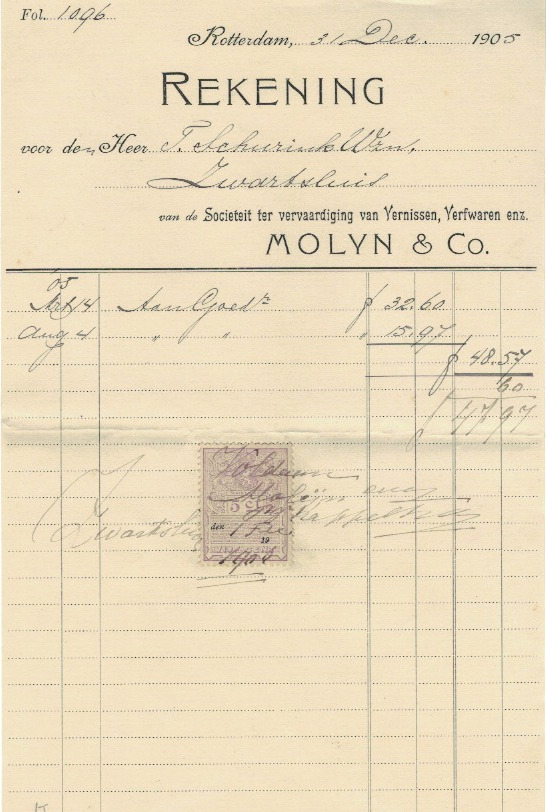 Fol. 1096
Rotterdam, 31 Dec. 1905
REKENING
voor den Heer T. Schurink Wzn,
Zwartsluis
van de Societeit ter vervaardiging van Vernissen, Verfwaren enz.
MOLYN & Co.
05
14 Aan Goedn ƒ 32.60
Aug 4 " " " 15.97
ƒ 48.57
60
ƒ 47.97
Voldaan
Molijn
Zwartsluis
den 1 19